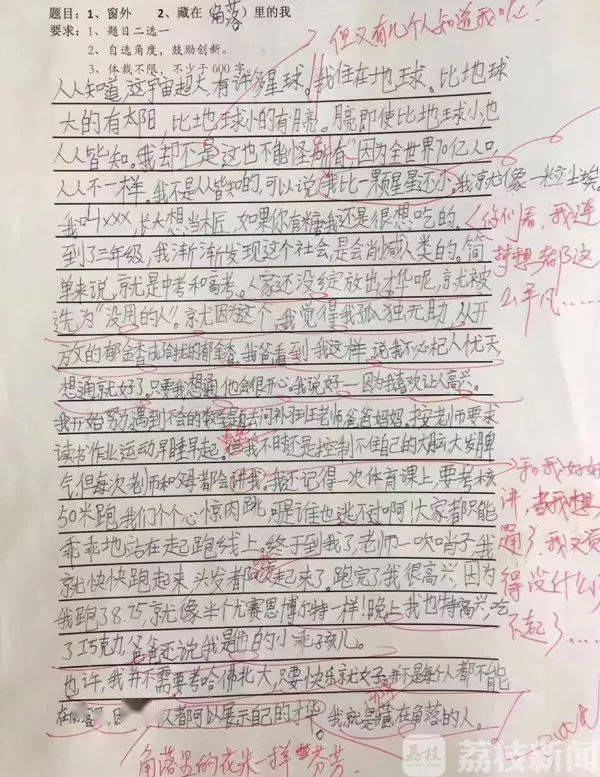 题目：1、窗外 2、藏在（角落）里的我
要求：1、题目二选一
2、自选角度，鼓励创新。
3、体裁不限，不少于600字
但又有几个人知道我呢？
人人知道，这宇宙超大有许多星球。我住在地球。比地球
大的有太阳，比地球小的有月亮。月亮即使比地球小，也
人人皆知。我却不是这也不能怪别人，因为全世界70亿人口，
人人不一样。我不是人皆知的，可以说我比一颗星星还小。我就像一粒尘埃。
我叫xxx，长大想当木匠，如果你有糖我还是很想吃的。
你们看，我连梦想都这么平凡……
到了三年级，我渐渐发现这个社会，是会消灭人类的。简
单来说，就是中考和高考。人家还没绽放出才华呢，就被
选为“没用的人”。就因为这个，我觉得我孤独无助，从开
放的郁金香成枯我的郁金香。我爸看到我这样，说我不必杞人忧天，
想通就好了。只要我想通，他会很开心。我说好——因为我喜欢让人高兴。
我开始努力，遇到不会的数学题去问补习班老师爸爸妈妈。按老师要求
读书作业运动早睡早起。但我不时还是控制不住自己的大脑大发脾
气，但每次老师和父母都会讲我。我还记得一次体育课上，要考核
和我好好讲，当我想
50米跑，我们个个心惊肉跳，可是谁也逃不对啊！大家都只能
乖乖地站在起跑线上。终于到我了，老师一吹哨子，我
就快快跑起来，头发都飘起来了。跑完了，我很高兴，因为
我跑了8.75，就像半个尤赛恩博尔特一样！晚上我也特高兴，吃
了巧克力，爸爸还说我是他的小乖孩儿。
也许，我并不需要考哈佛北大，只要快乐就好。并不是每个人都不能
人都可以展示自己的才华。我就是藏在角落的人。
角落里的花朵一样芬芳
荔枝 荔枝新闻